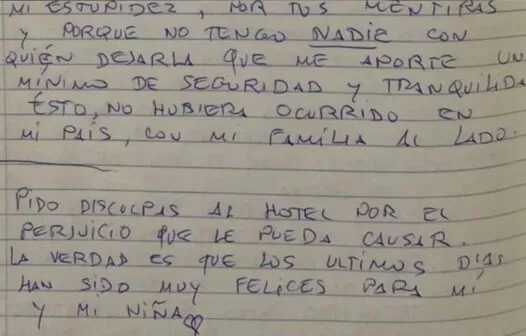 MI ESTUPIDEZ, POR TUS MENTIRAS
Y PORQUE NO TENGO NADIE CON
QUIÉN DEJARLA QUE ME APORTE UN
MÍNIMO DE SEGURIDAD Y TRANQUILIDA
ÉSTO, NO HUBIERA OCURRIDO EN
MI PAÍS, CON MI FAMILIA AL LADO.
PIDO DISCULPAS AL HOTEL POR EL
PERJUICIO QUE LE PUEDA CAUSAR.
LA VERDAD ES QUE LOS ULTIMOS DÍAS
HAN SIDO MUY FELICES PARA MÍ
Y MI NIÑA